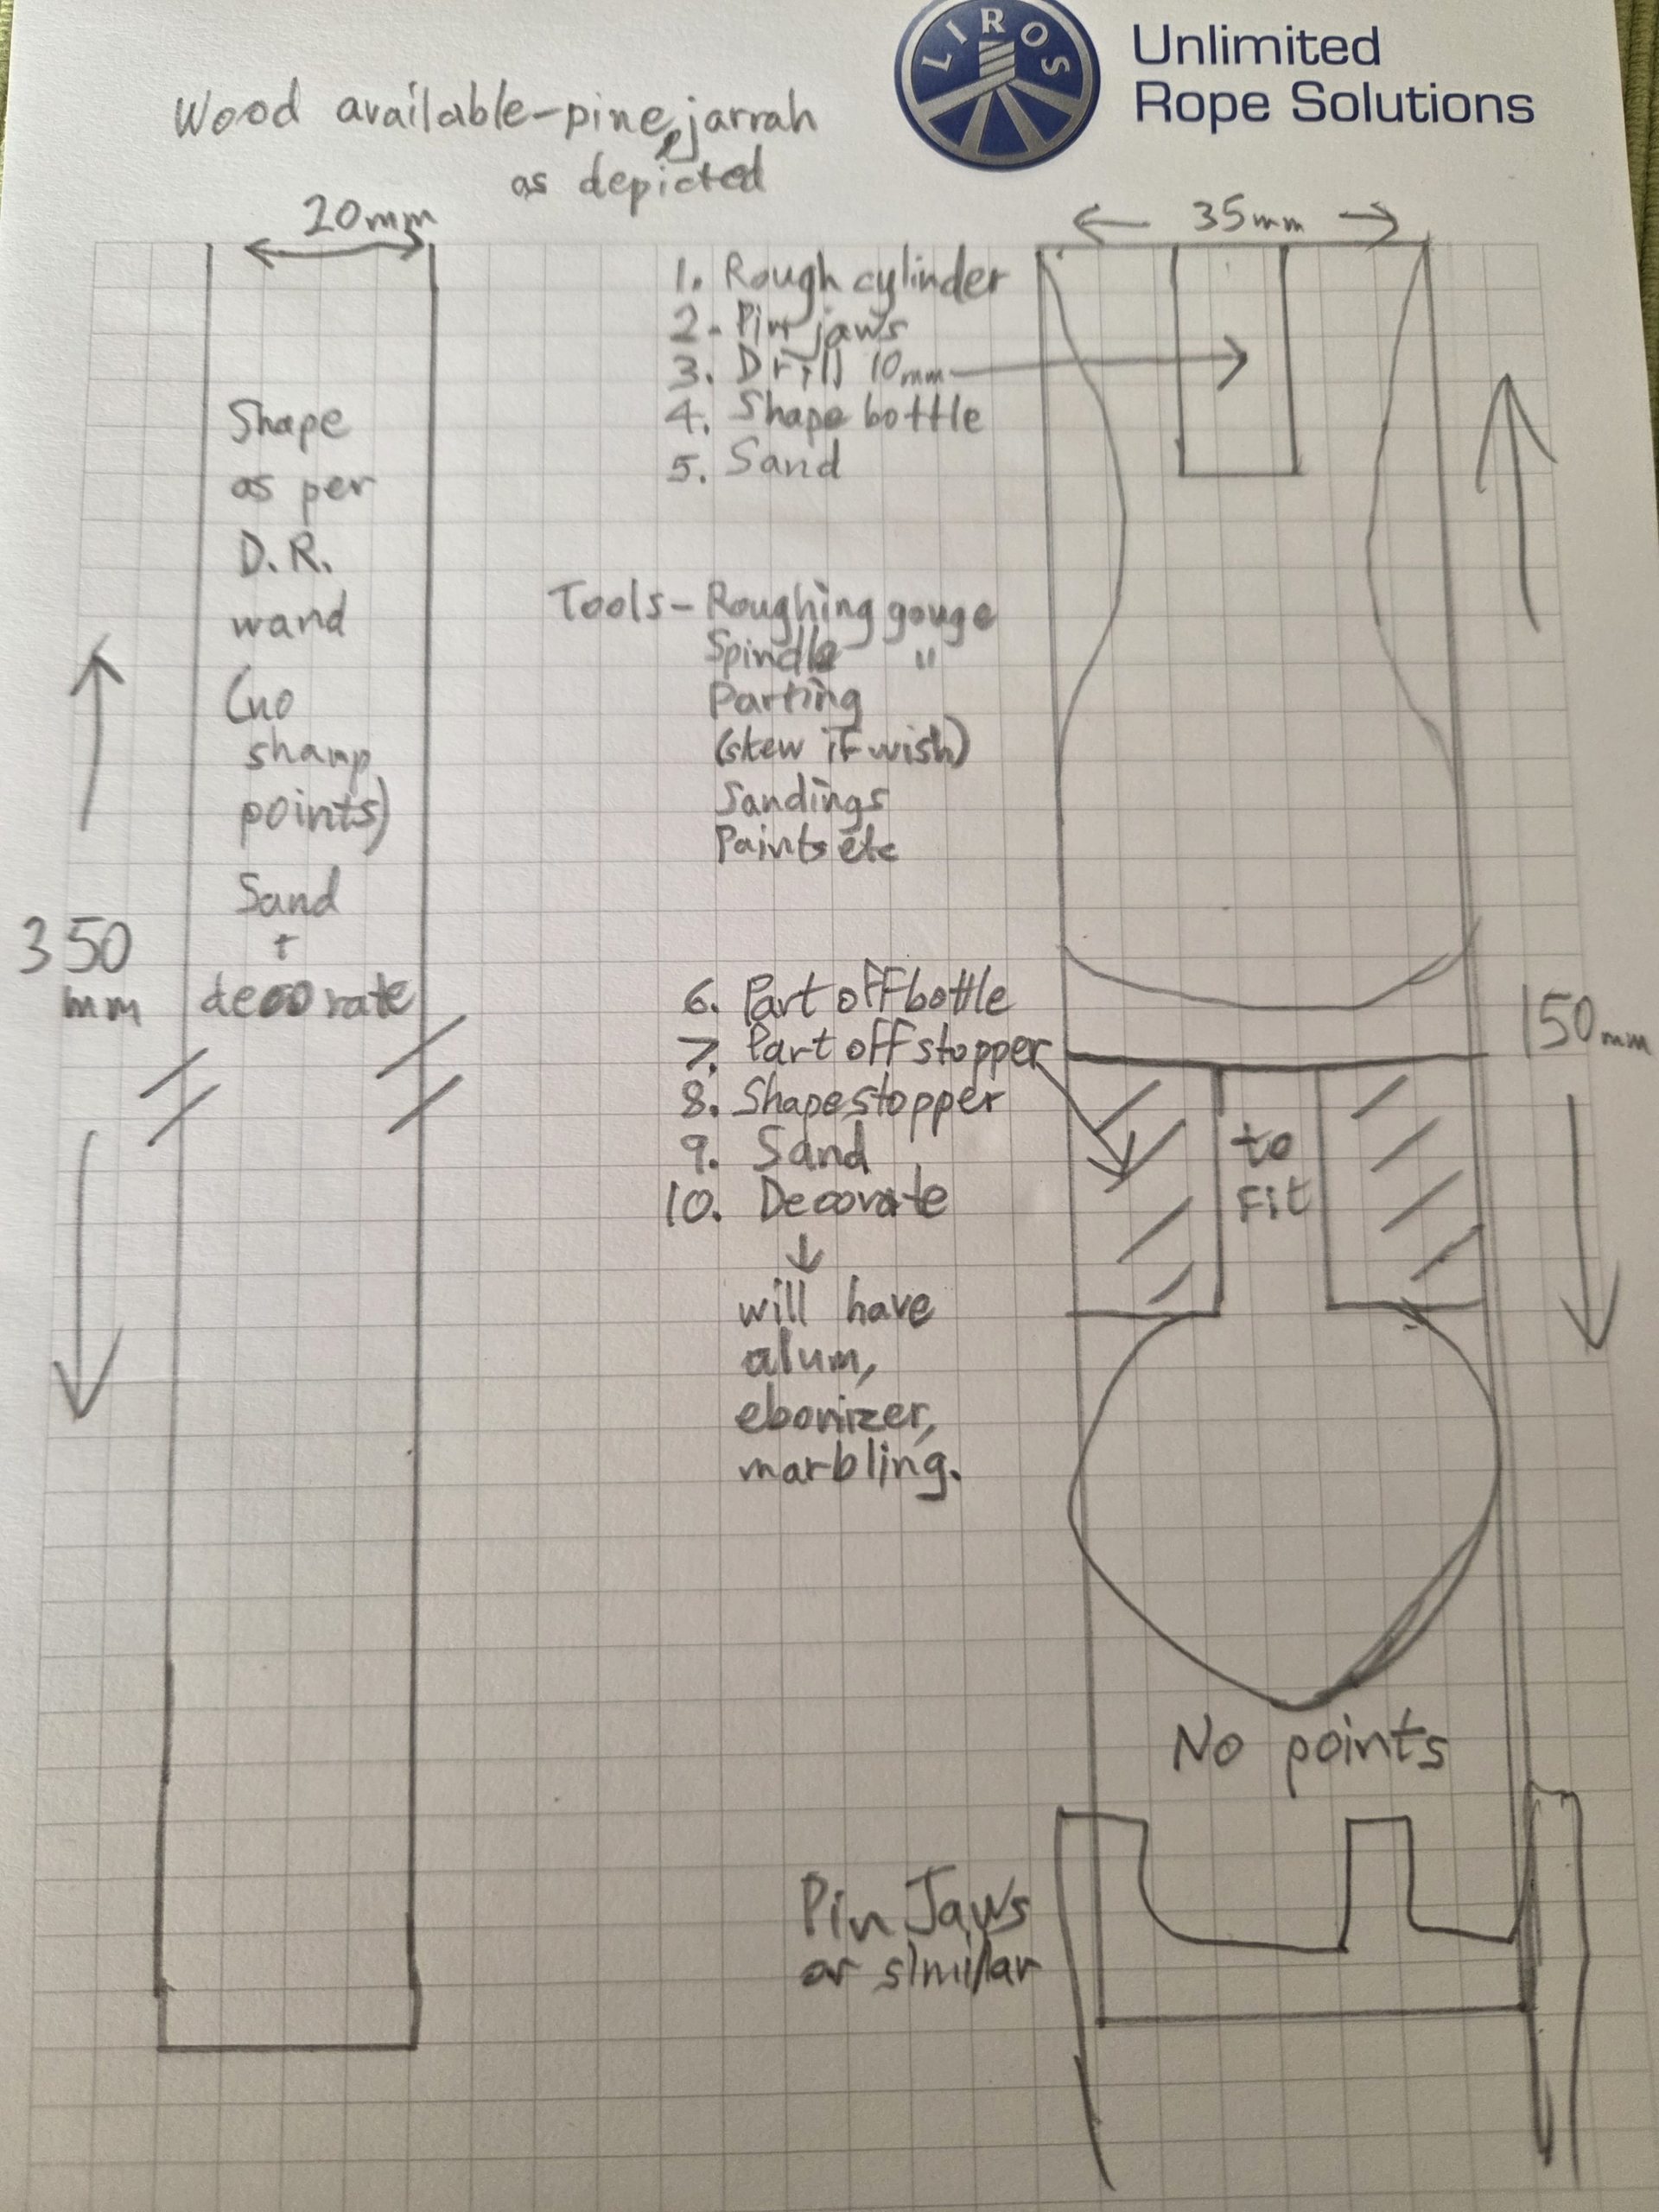 LIROS
Unlimited
Rope Solutions
Wood available-pine, jarrah
as depicted
20mm
35mm
Shape
as per
D.R.
wand
(no
sharp
points)
Sand
+
decorate
350
mm
1. Rough cylinder
2. Pin jaws
3. Drill 10mm
4. Shape bottle
5. Sand
Tools - Roughing gouge
Spindle "
Parting
(skew if wish)
Sandings
Paints etc
6. Part off bottle
7. Part off stopper
8. Shape stopper
9. Sand
10. Decorate
will have
alum,
ebonizer,
marbling.
150mm
to
Fit
No points
Pin Jaws
or similar